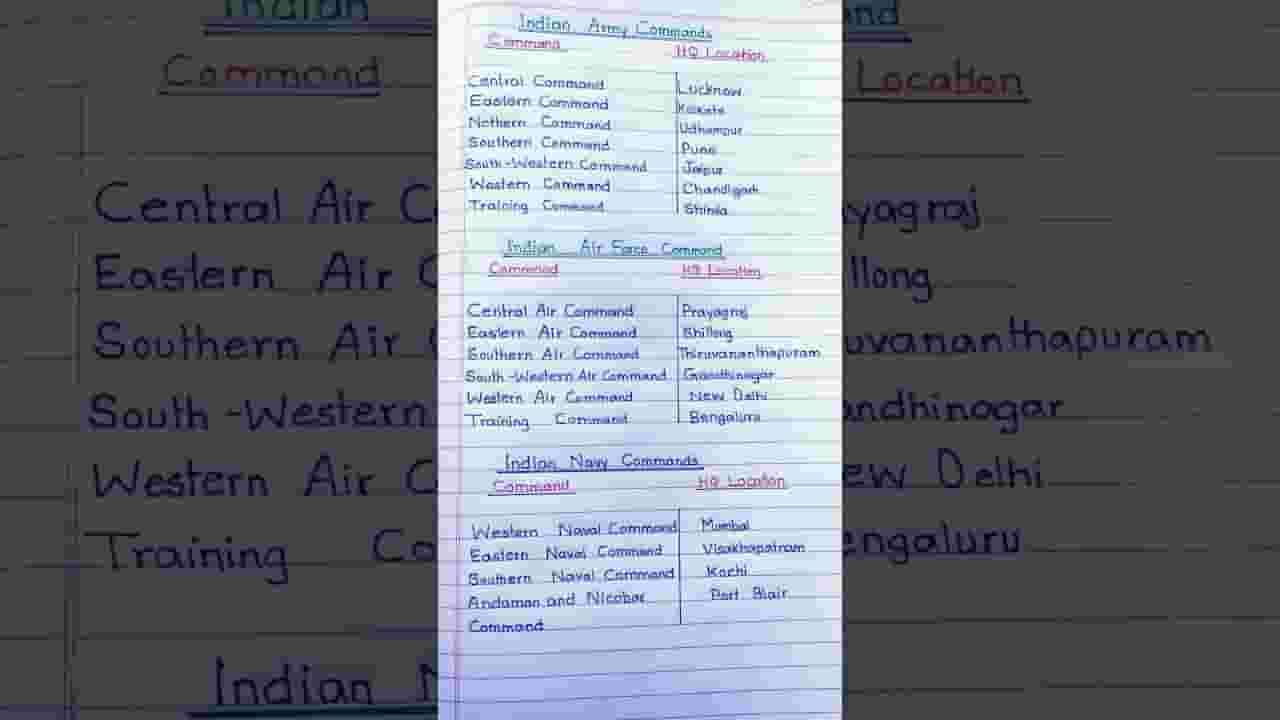 Indian Army Commands
Command HQ Location
Central Command Lucknow
Eastern Command Kolkata
Nothern Command Udhampur
Southern Command Pune
South-Western Command Jaipur
Western Command Chandigarh
Training Command Shimla
Indian Air Force Command
Command HQ Location
Central Air Command Prayagraj
Eastern Air Command Shillong
Southern Air Command Thiruvananthapuram
South-Western Air Command Gandhinagar
Western Air Command New Delhi
Training Command Bengaluru
Indian Navy Commands
Command HQ Location
Western Naval Command Mumbai
Eastern Naval Command Visakhapatnam
Southern Naval Command Kochi
Andaman and Nicobar Port Blair
Command
Indian
Command
Central Air C
Eastern Air C
Southern Air C
South-Western
Western Air C
Training Co
Indian N
nd
Location
yagraj
llong
uvananthapuram
andhinagar
ew Delhi
engaluru